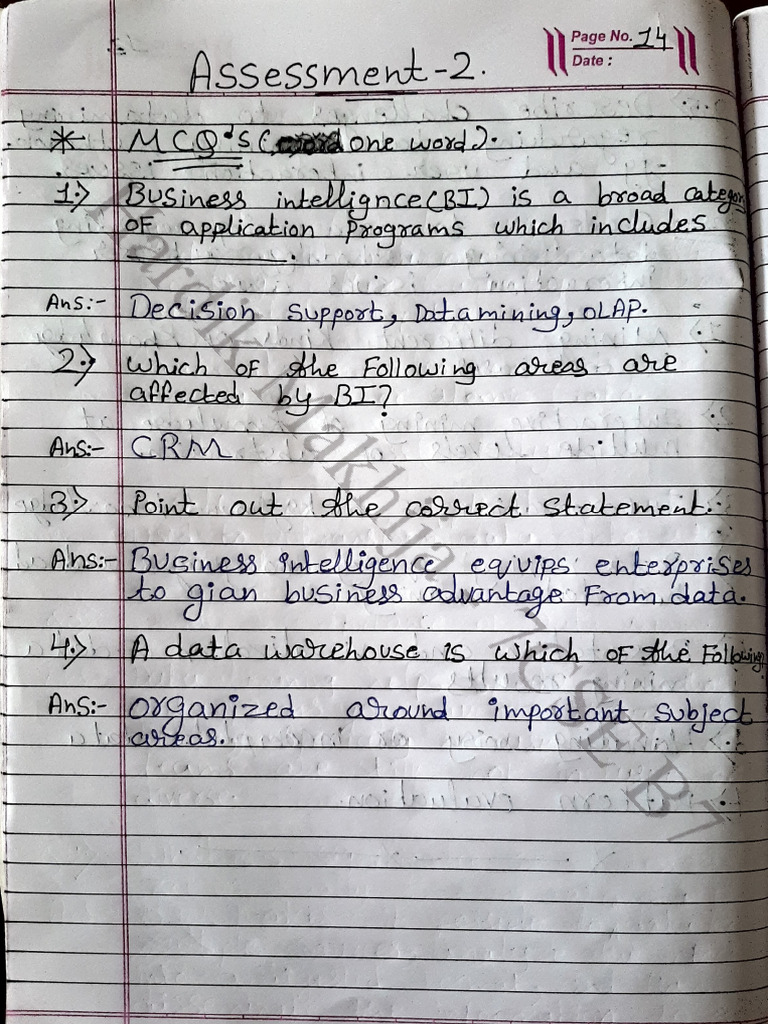 Page No. 14
Date :
Assessment-2.
* MCQ's (one word).
1.) Business intellignce(BI) is a broad category
of application programs which includes
__________.
Ans:- Decision support, Datamining, OLAP.
2.) which of the following areas are
affected by BI?
Ans:- CRM
3.) Point out the correct statement.
Ans:- Business intelligence equips enterprises
to gian business advantage from data.
4.) A data warehouse is which of the following
Ans:- organized around important subject
areas.
Hardik Makhija - 7CSE B7